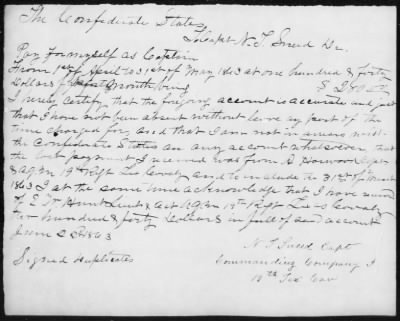 The Confederate States
To Capt N. T. Sneed Dr.
Pay for myself as Captain
From 1st of April to 31st of May 1863 at one hundred & forty
Dollars per month being $ 280.00
I hereby certify that the foregoing account is accurate and just
that I have not been absent without leave any part of the
time charged for, and that I am not in arrears with
the Confederate States on any account whatsoever, that
the last payment I received was from Capt
& AQM Regt Cavalry and to include the 31st of
1863 I at the same time acknowledge that I have received
of E. W. Hunt Lieut & Act AQM Regt Cavalry
two hundred & forty Dollars in full of said account
June 1863
N. T. Sneed Capt
Signed Duplicates
Commanding Company I
Tex Cav